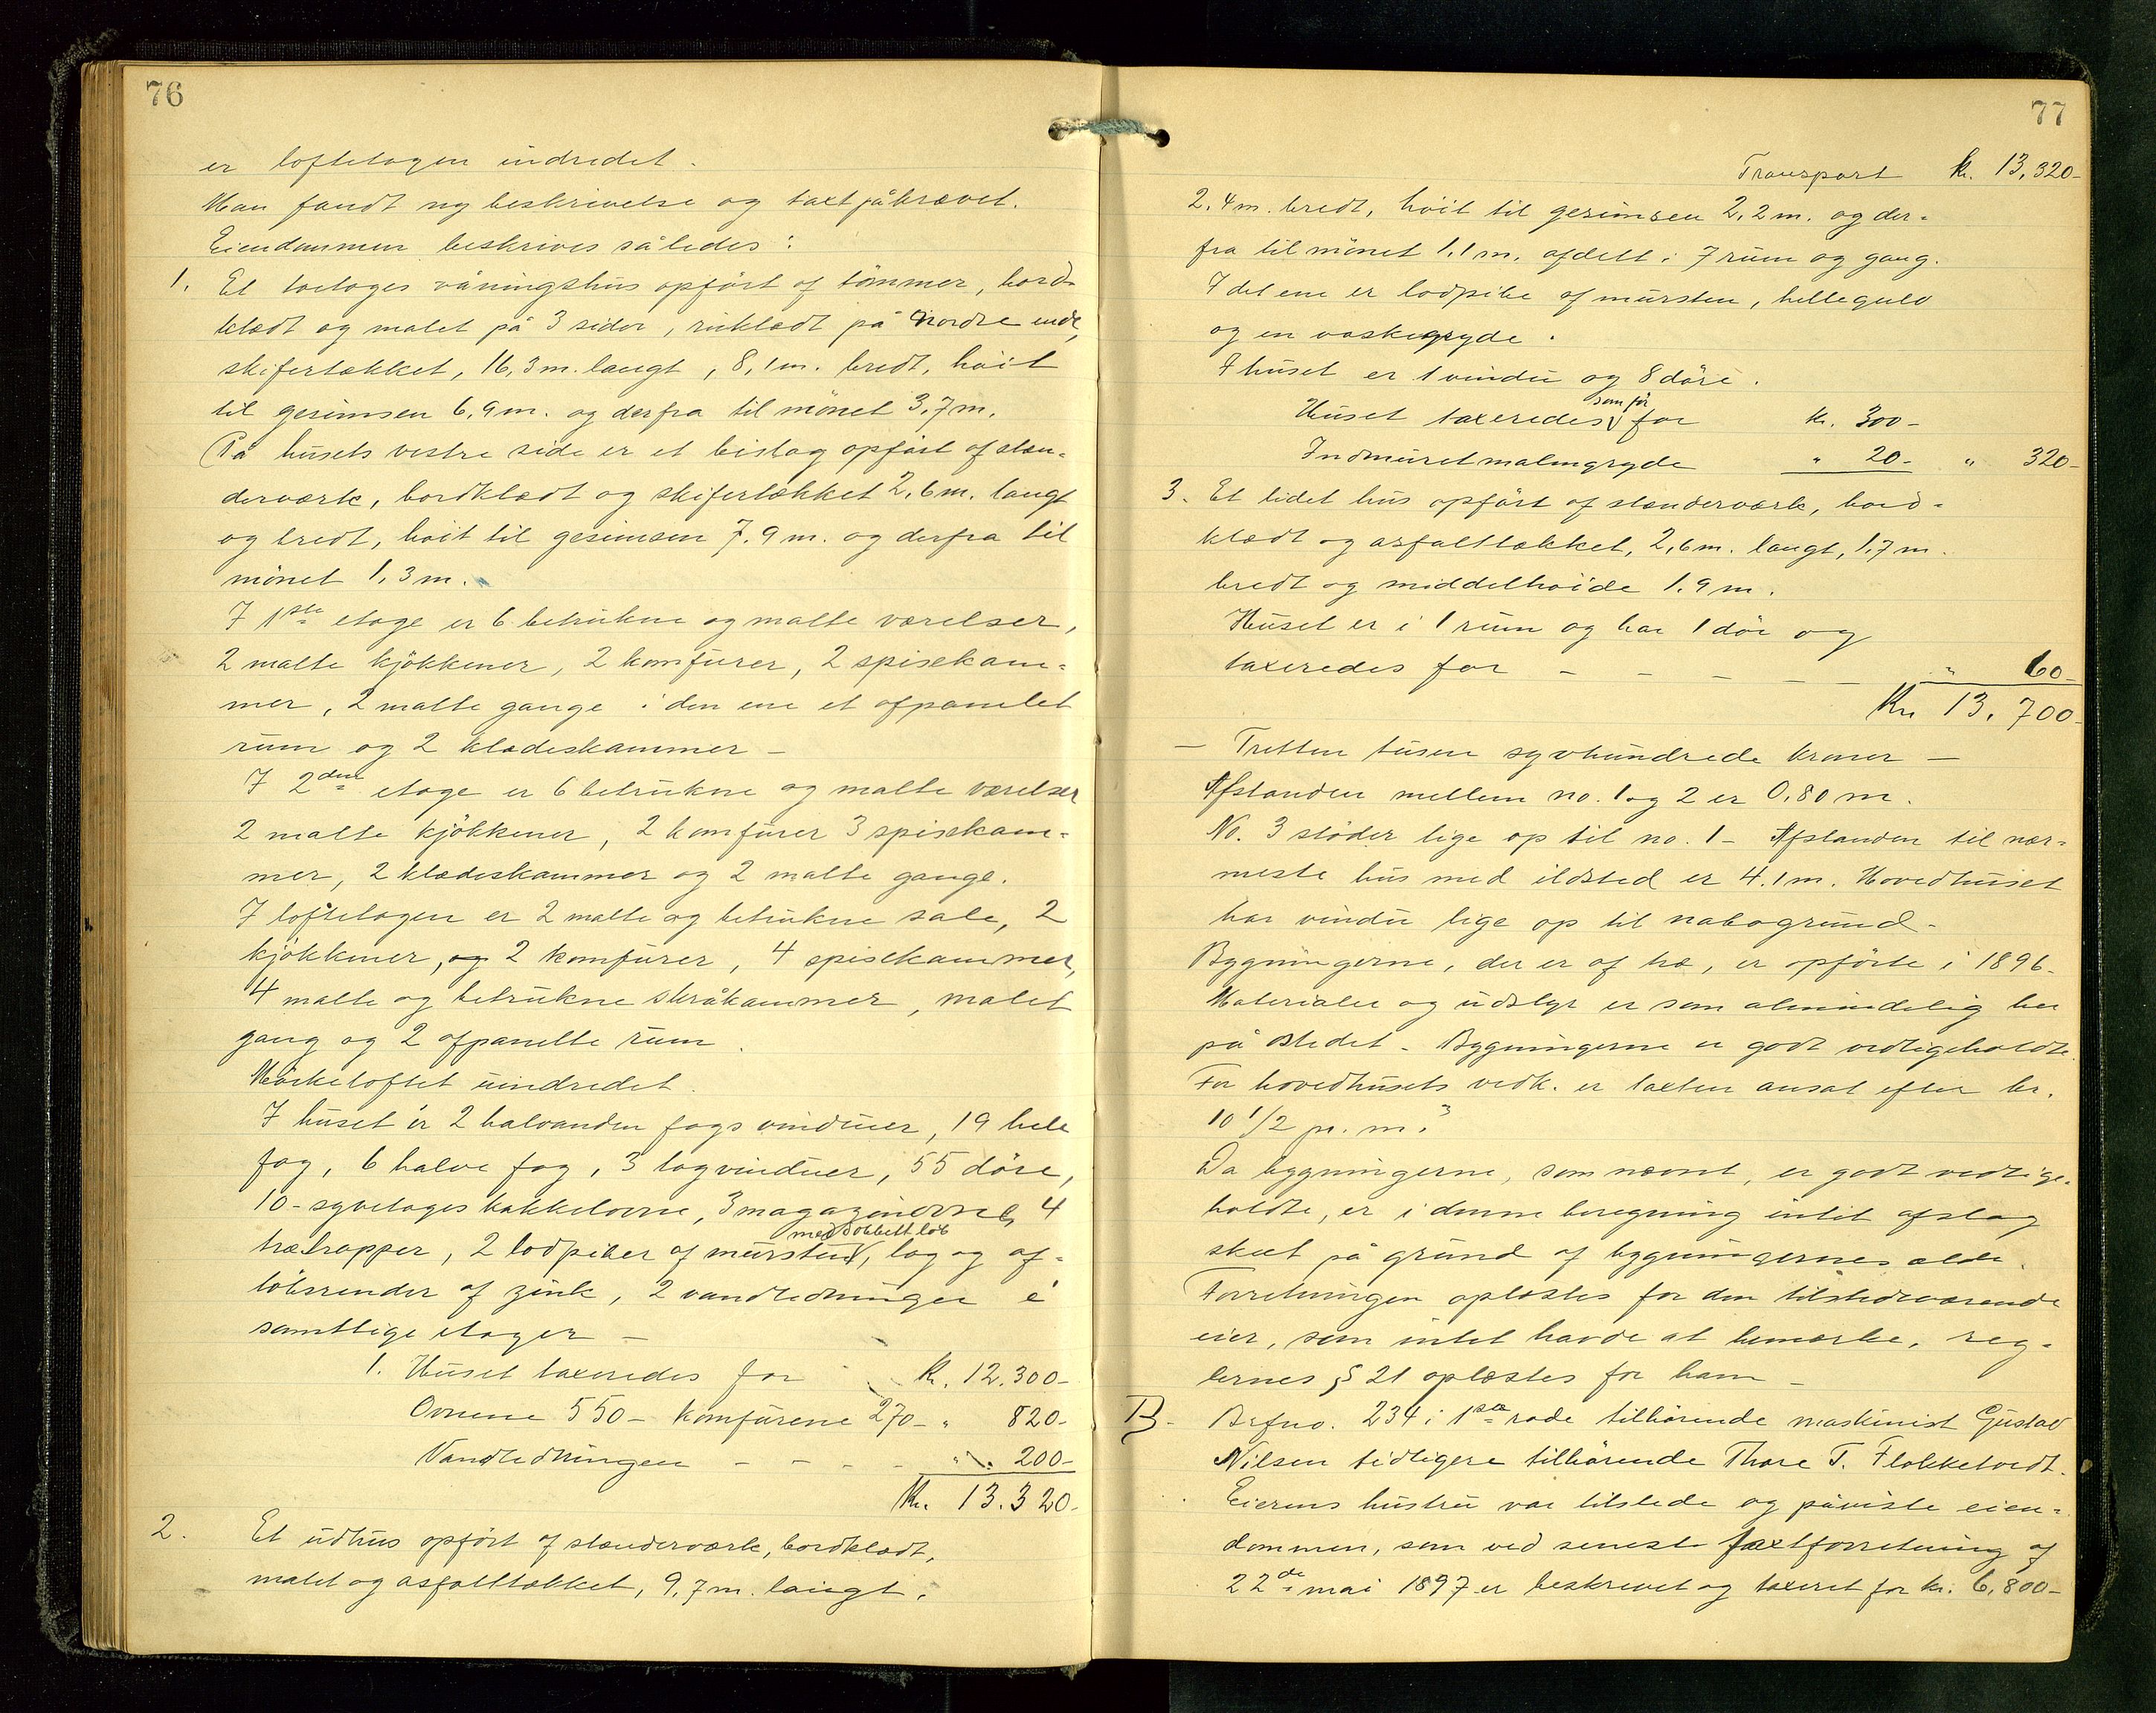 76
er loftetagen indredet.
Man fandt ny beskrivelse og taxt påkrævet.
Eiendommen beskrives således:
1. Et toetages våningshus opført af tømmer, bord-
klædt og malet på 3 sider, rukledt på nordre ende,
skifertækket, 16,3 m. langt, 8,1 m. bredt, høit
til gesimsen 6,9 m. og derfra til mønet 3,7 m.
På husets vestre side er et bislag opført af stæn-
derværk, bordklædt og skifertækket 2,6 m. langt
og bredt, høit til gesimsen 7,9 m. og derfra til
mønet 1,3 m.
I 1ste etage er 6 betrukne og malte værelser,
2 malte kjøkkener, 2 komfurer, 2 spisekam-
mer, 2 malte gange i den ene et afpanelet
rum og 2 klædeskammer -
I 2den etage er 6 betrukne og malte værelser
2 malte kjøkkener, 2 komfurer 3 spisekam-
mer, 2 klædeskammer og 2 malte gange.
I loftetagen er 2 malte og betrukne sale, 2
kjøkkener, og 2 komfurer, 4 spisekammer,
4 malte og betrukne skråkammer, malet
gang og 2 afpanelte rum.
Mørkeloftet uindredet.
I huset er 2 halvanden fags vinduer, 19 hele
fag, 6 halve fag, 3 tagvinduer, 55 døre,
10 - syvetages kakkelovne, 3 magazinovne, 4
med dobbelt løb
trætrapper, 2 lodpiber af mursten, tag og af-
løbsrender af zink, 2 vandledninger i
samtlige etager -
1. Huset taxeredes for kr. 12.300-
Ovnene 550 - komfurene 270 - " 820-
Vandledningen - - - - " 200-
Kr. 13.320-
2. Et udhus opført af stænderværk, bordklædt,
malet og asfalttækket, 9,7 m. langt,
77
Transport kr. 13,320-
2.4 m. bredt, høit til gesimsen 2,2 m. og der-
fra til mønet 1,1 m. afdelt i 7 rum og gang.
I det ene er lodpibe af mursten, hellegulv
og en vaskegryde.
I huset er 1 vindu og 8 døre.
som før
Huset taxeredes for kr. 300-
Indmuret malmgryde " 20- " 320-
3. Et lidet hus opført af stænderværk, bord-
klædt og asfalttækket, 2,6 m. langt, 1,7 m.
bredt og middelhøide 1,9 m.
Huset er i 1 rum og har 1 dør og
taxeredes for - - - - - " 60-
Kr. 13.700-
- Tretten tusen syvhundrede kroner -
Afstanden mellem no. 1 og 2 er 0,80 m.
No. 3 støder lige op til no. 1 - Afstanden til nær-
meste hus med ildsted er 4.1 m. Hovedhuset
har vindu lige op til nabogrund -
Bygningerne, der er af træ, er opførte i 1896.
Materialer og udstyr er som almindelig her
på stedet - Bygningerne er godt vedligeholdte.
For hovedhusets vedk. er taxten ansat efter kr.
10 1/2 pr. m.³
Da bygningerne, som nævnt, er godt vedlige-
holdte, er i denne beregning intet afslag
skeet på grund af bygningernes ælde.
Forretningen oplæstes for den tilstedeværende
eier, som intet havde at bemærke, reg-
lernes § 21 oplæstes for ham -
B. Brfno. 234 i 1ste rode tilhørende maskinist Gustav
Nilsen tidligere tilhørende Thore T. Flokketvedt.
Eierens hustru var tilstede og påviste eien-
dommen, som ved seneste taxtforretning af
22de mai 1897 er beskrevet og taxeret for kr. 6,800-